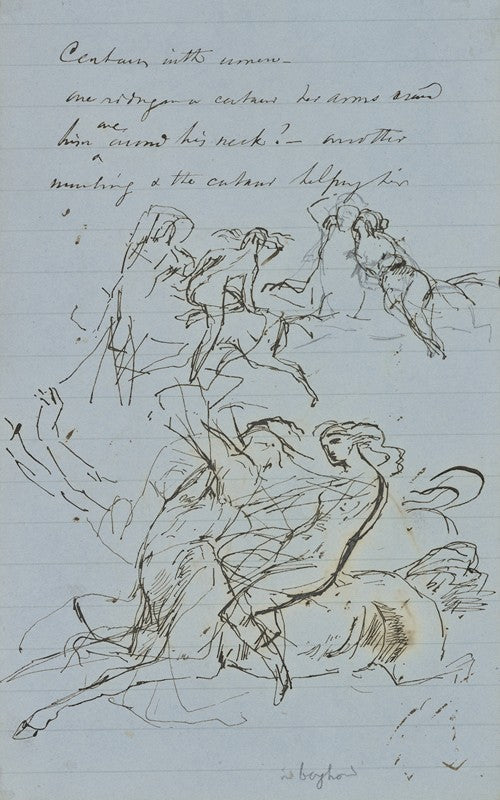 Centaurs with women –
one riding on a centaur her arms round
him one round his neck? – another
mounting & the centaur helping her
boyhood